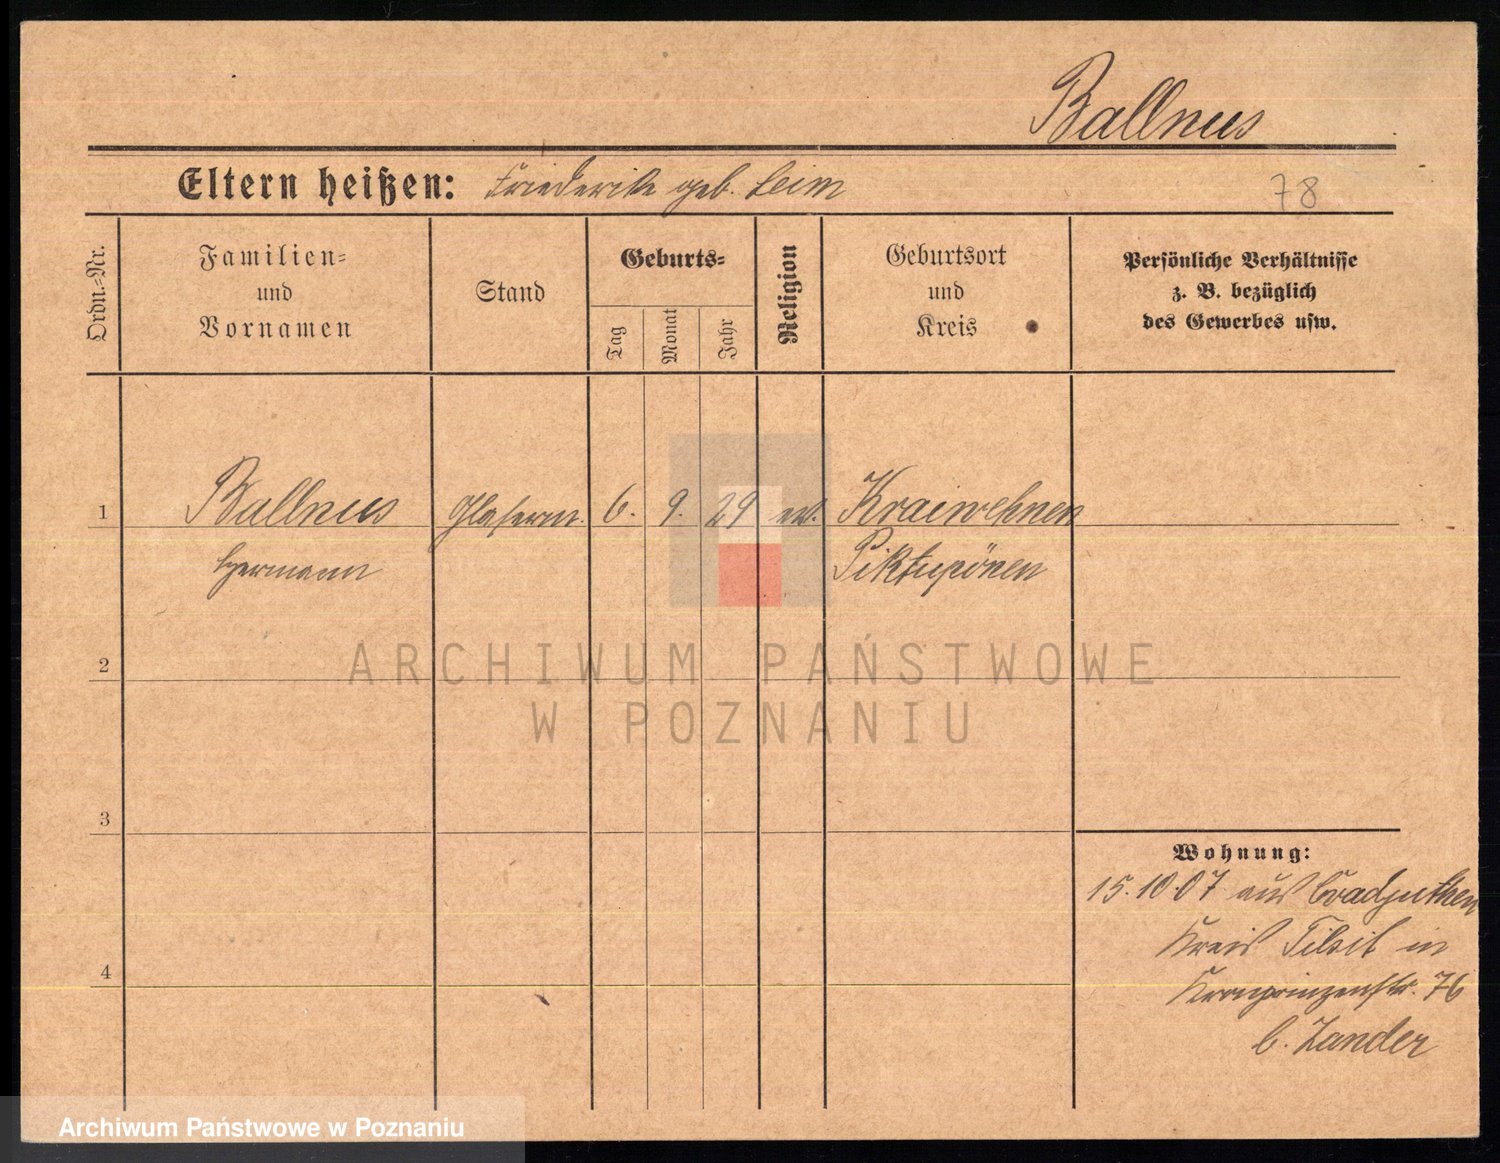 Ballnus
Eltern heißen: Friederike geb. Leim
78
Ordn.-Nr.
Familien-
und
Vornamen
Stand
Geburts-
Tag
Monat
Jahr
Religion
Geburtsort
und
Kreis
Persönliche Verhältnisse
z. B. bezüglich
des Gewerbes usw.
1 Ballnus Glaserm. 6. 9. 29 ev. Kraiwehnen
Hermann Piktupönen
ARCHIWUM PAŃSTWOWE
W POZNANIU
2
3
Wohnung:
15.10.07 aus Coadjuthen
Kreis Tilsit in
Kronprinzenstr. 76
b. Zander
4
Archiwum Państwowe w Poznaniu